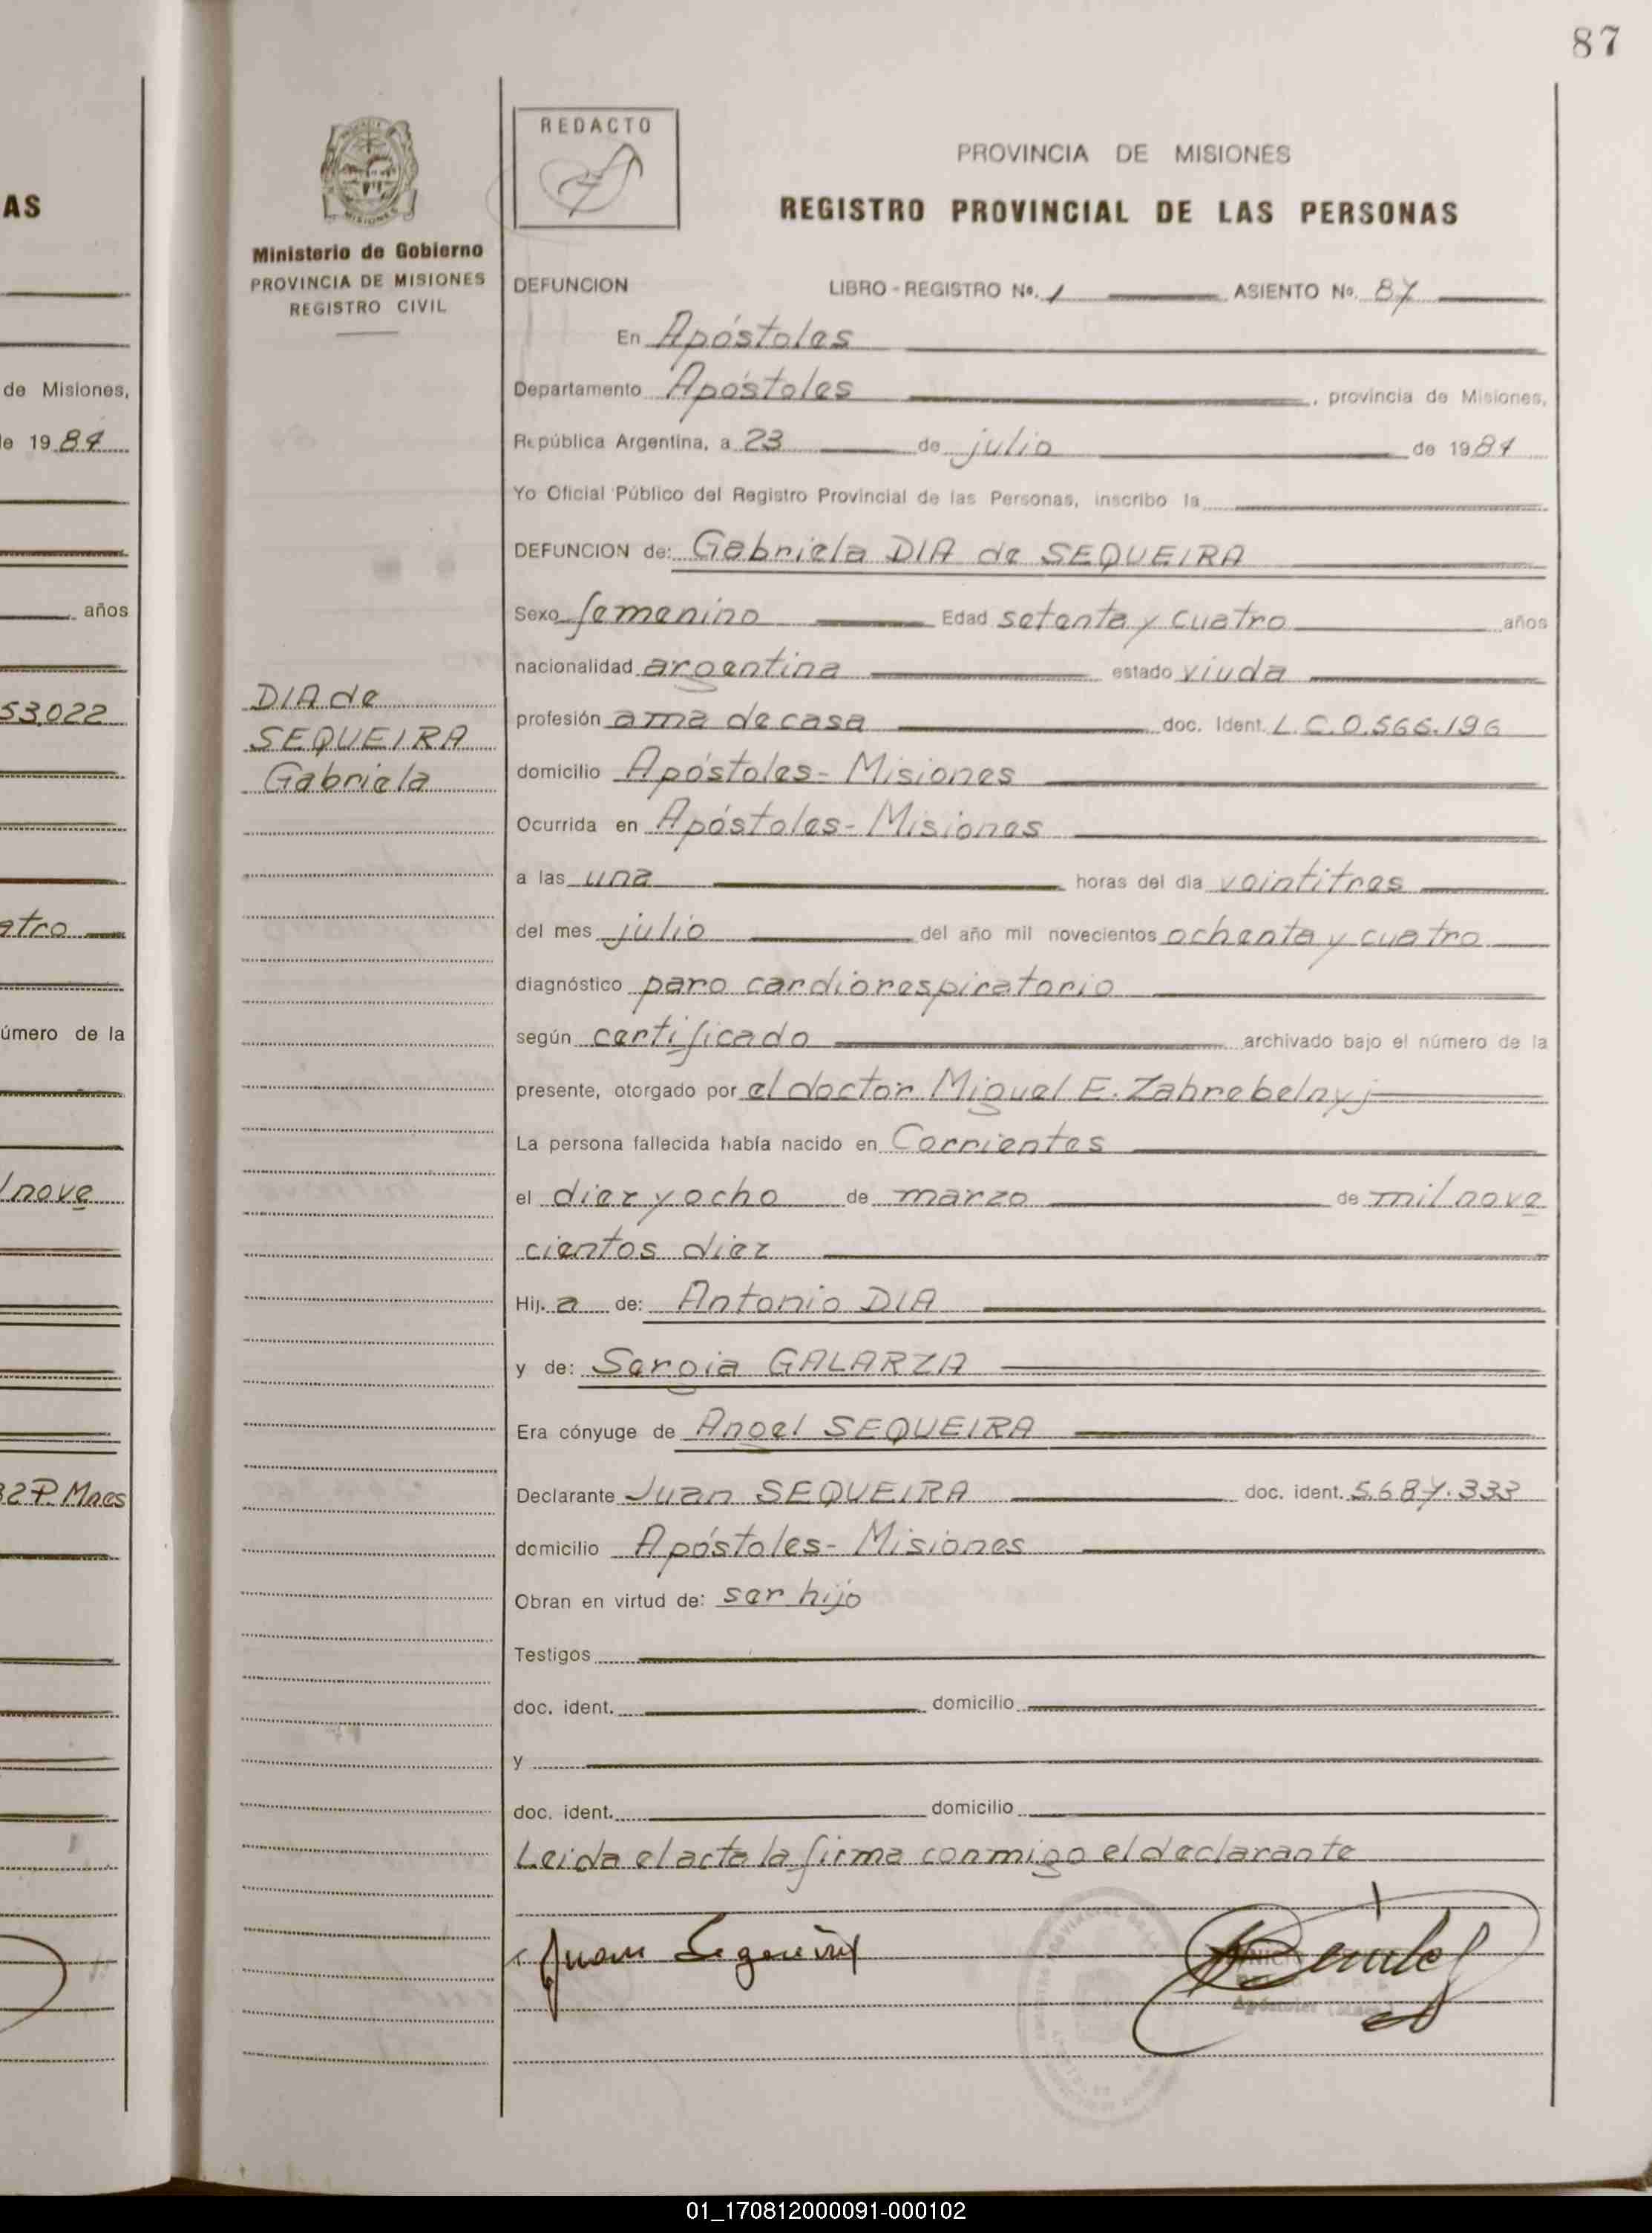 87
AS
de Misiones,
de 1984
años
53.022
atro
número de la
l nove
32 P. Mnes
Ministerio de Gobierno
PROVINCIA DE MISIONES
REGISTRO CIVIL
DIA de
SEQUEIRA
Gabriela
REDACTO
PROVINCIA DE MISIONES
REGISTRO PROVINCIAL DE LAS PERSONAS
DEFUNCION LIBRO - REGISTRO No. 1 ASIENTO No. 87
En Apóstoles
Departamento Apóstoles, provincia de Misiones,
República Argentina, a 23 de julio de 1984
Yo Oficial Público del Registro Provincial de las Personas, inscribo la
DEFUNCION de: Gabriela DIA de SEQUEIRA
Sexo femenino Edad setenta y cuatro años
nacionalidad argentina estado viuda
profesión ama de casa doc. Ident. L.C.0.566.196
domicilio Apóstoles - Misiones
Ocurrida en Apóstoles - Misiones
a las una horas del día veintitres
del mes julio del año mil novecientos ochenta y cuatro
diagnóstico paro cardiorespiratorio
según certificado archivado bajo el número de la
presente, otorgado por el doctor Miguel E. Zahrebelnyj
La persona fallecida había nacido en Corrientes
el diez y ocho de marzo de mil nove
cientos diez
Hij. a de: Antonio DIA
y de: Sergia GALARZA
Era cónyuge de Angel SEQUEIRA
Declarante Juan SEQUEIRA doc. ident. 5.687.333
domicilio Apóstoles - Misiones
Obran en virtud de: ser hijo
Testigos
doc. ident. domicilio
y
doc. ident. domicilio
Leida el acta la firma conmigo el declarante
Juan Segueira
01_170812000091-000102